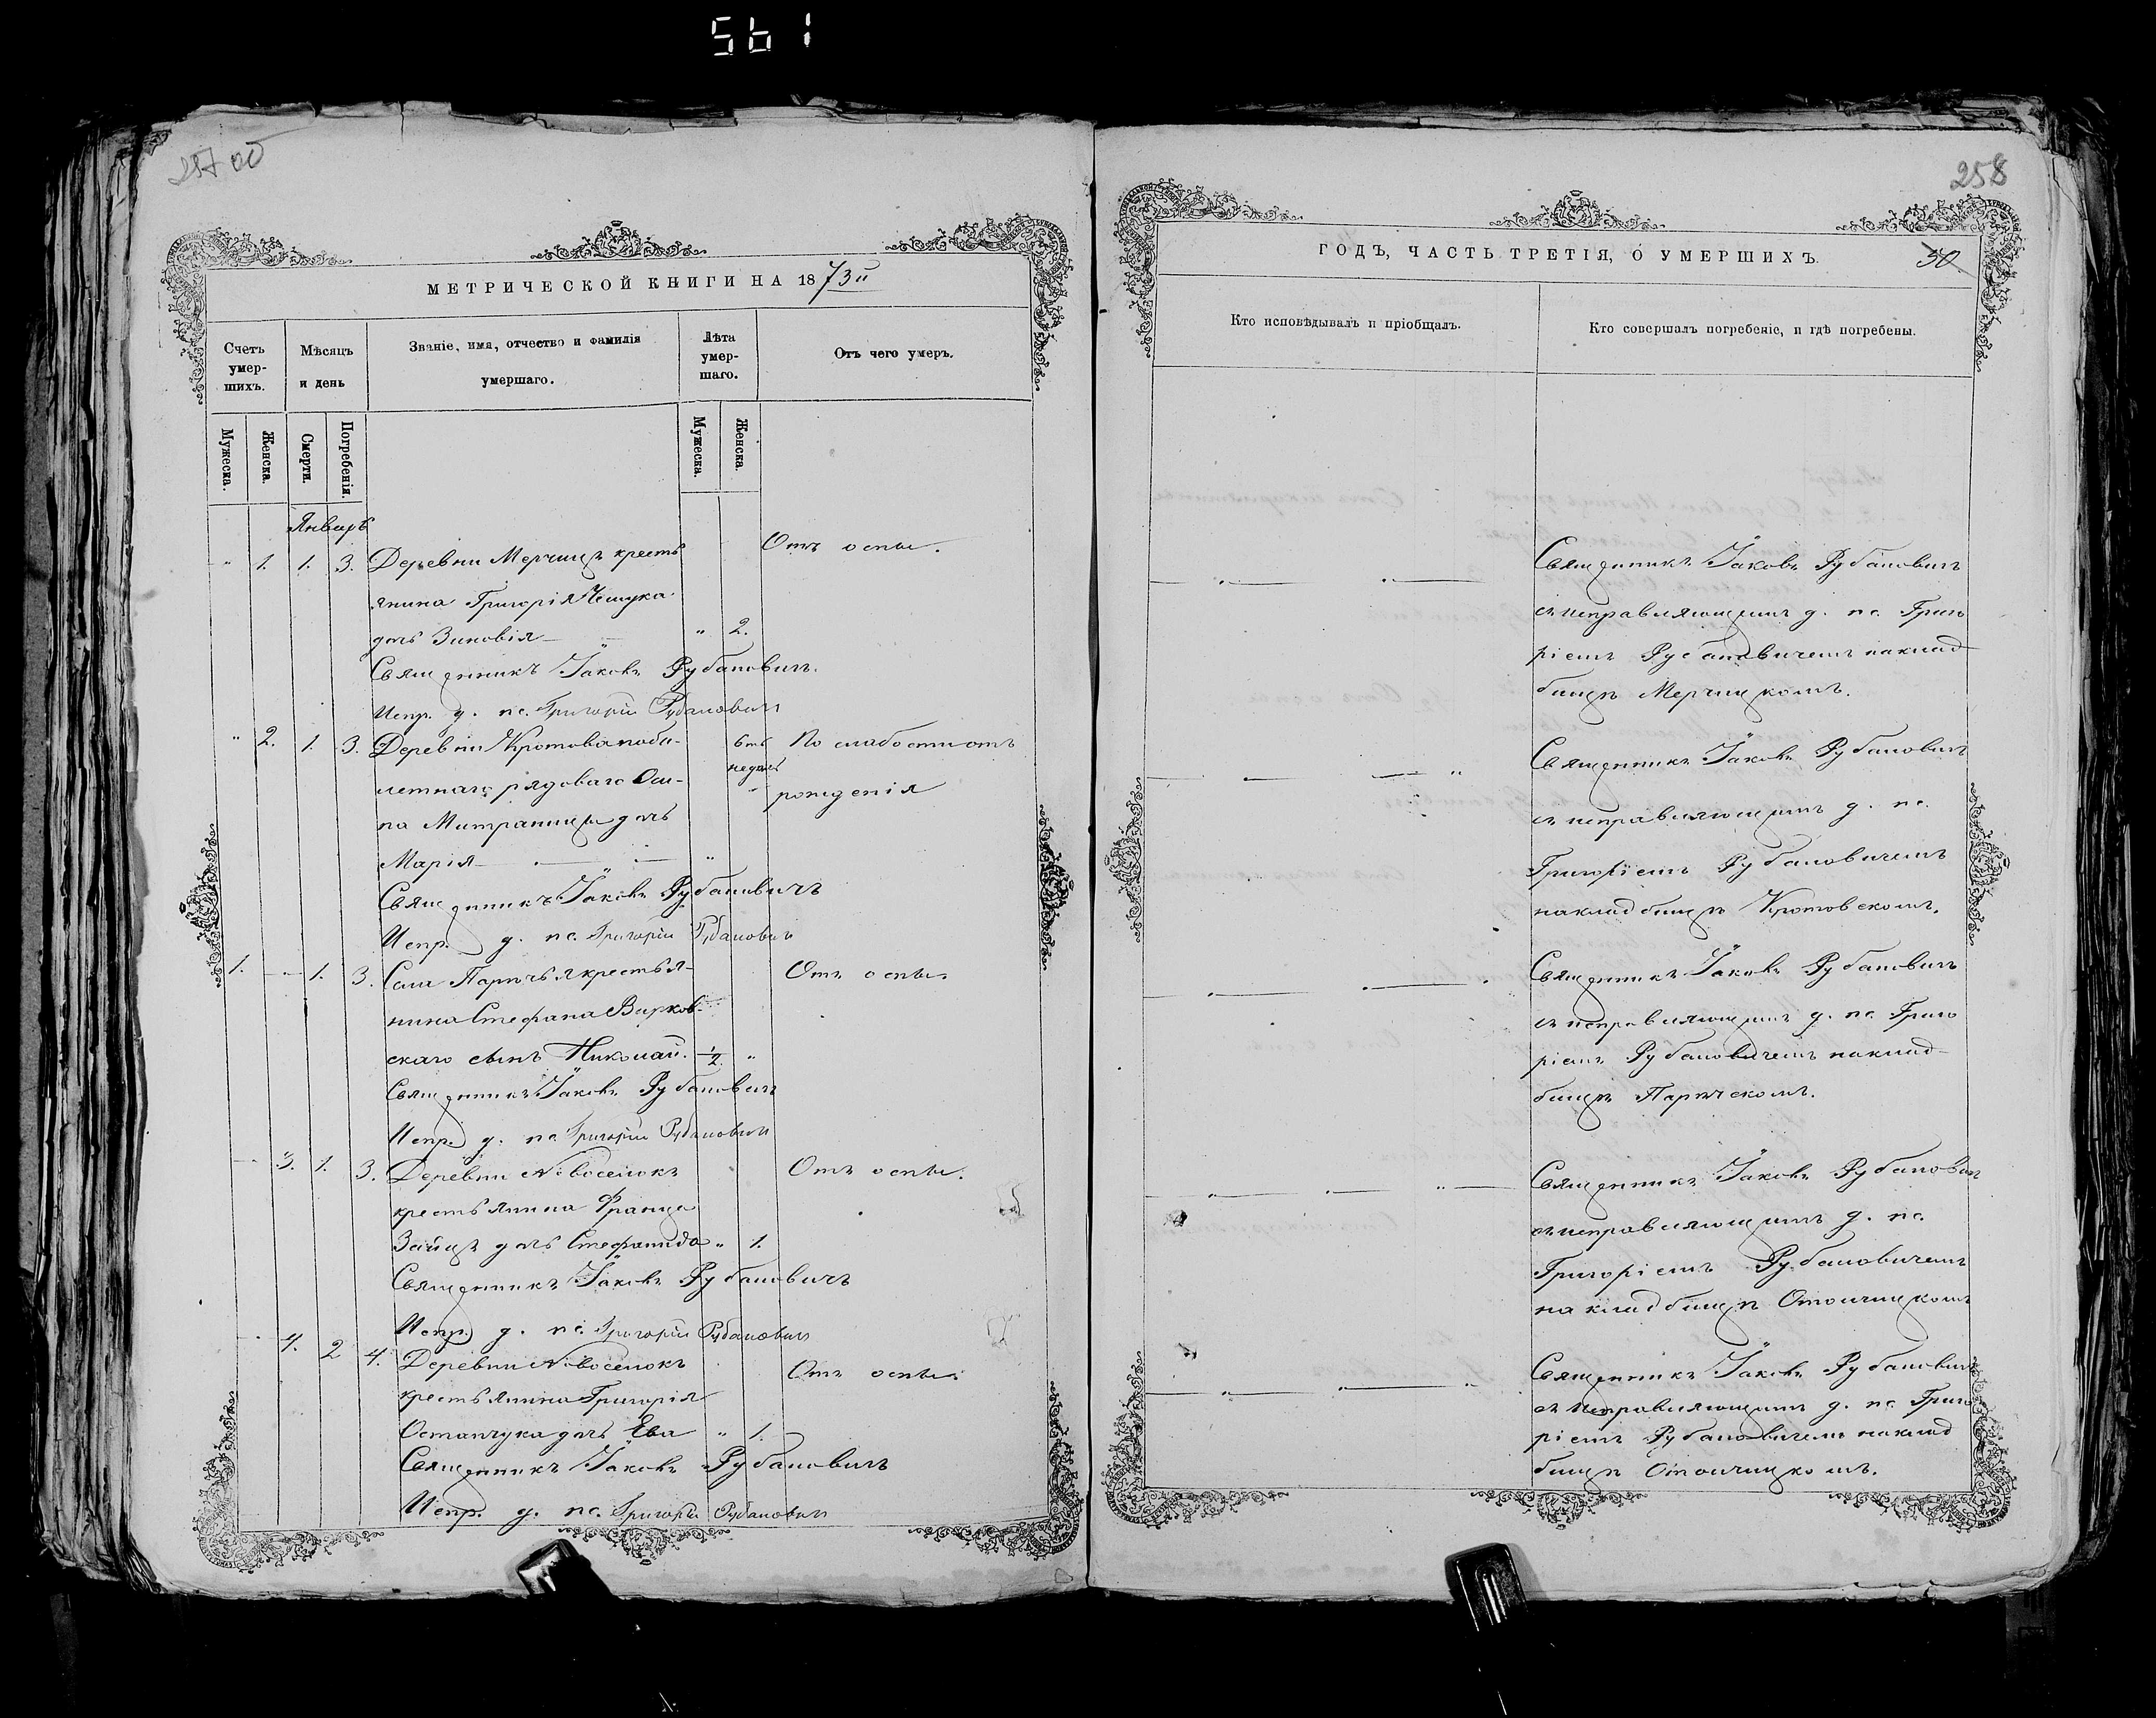 561
257 об
МЕТРИЧЕСКОЙ КНИГИ НА 1873й
Счетъ умер-шихъ.
Мѣсяцъ и день
Званіе, имя, отчество и фамилія умершаго.
Лѣта умер-шаго.
Отъ чего умеръ.
Мужеска.
Женска.
Смерти.
Погребенія.
Мужеска.
Женска.
Январь
" 1. 1. 3. Деревни Мерчицъ кресть Отъ оспы.
янина Григорія
дочь Зиновія " 2.
Священникъ Іаковъ Рубановичъ.
Испр. д. пс. Григорій Рубановичъ
" 2. 1. 3. Деревни Кротова въ По слабости отъ
рядоваго Оси- недѣль рожденія
па дочь
Марія "
Священникъ Іаковъ Рубановичъ
Испр. д. пс. Григорій Рубановичъ
1. 1. 3. Села Парѣчья крестья- Отъ оспы.
нина Стефана Вирков-
скаго сынъ Николай. 1/2 "
Священникъ Іаковъ Рубановичъ
Испр. д. пс. Григорій Рубановичъ
3. 1. 3. Деревни Новоселокъ Отъ оспы.
крестьянина Франца
Заицъ дочь Стефанида " 1.
Священникъ Іаковъ Рубановичъ
Испр. д. пс. Григорій Рубановичъ
4. 2 4. Деревни Новоселокъ Отъ оспы.
крестьянина Григорія
Остапчука дочь Ева " 1.
Священникъ Іаковъ Рубановичъ
Испр. д. пс. Григорій Рубановичъ
258
ГОДЪ, ЧАСТЬ ТРЕТІЯ, О УМЕРШИХЪ.
30
Кто исповѣдывалъ и пріобщалъ.
Кто совершалъ погребеніе, и гдѣ погребены.
Священникъ Іаковъ Рубановичъ
съ исправляющимъ д. пс. Григо
ріемъ Рубановичемъ на клад
бищѣ Мерчицкомъ.
Священникъ Іаковъ Рубановичъ
съ исправляющимъ д. пс.
Григоріемъ Рубановичемъ
на кладбищѣ Кротовскомъ.
Священникъ Іаковъ Рубановичъ
съ исправляющимъ д. пс. Григо
ріемъ Рубановичемъ на клад-
бищѣ Парѣчскомъ.
Священникъ Іаковъ Рубановичъ
съ исправляющимъ д. пс.
Григоріемъ Рубановичемъ
на кладбищѣ Отолчицкомъ
Священникъ Іаковъ Рубановичъ
съ исправляющимъ д. пс. Григо
ріемъ Рубановичемъ на клад
бищѣ Отолчицкомъ.